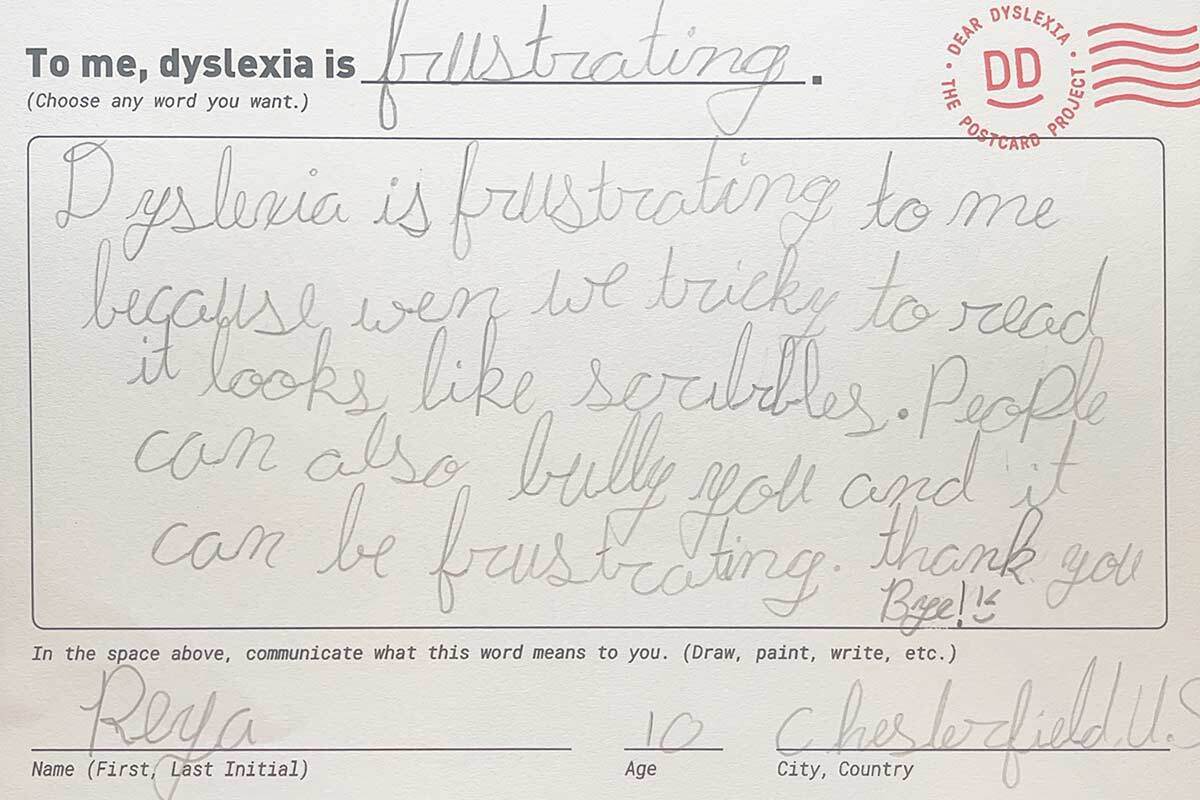 To me, dyslexia is frustrating.
(Choose any word you want.)
DEAR DYSLEXIA
DD
THE POSTCARD PROJECT
Dyslexia is frustrating to me
because wen we tricky to read
it looks like scribbles. People
can also bully you and it
can be frustrating. thank you
Byee!
In the space above, communicate what this word means to you. (Draw, paint, write, etc.)
Reya 10 Chesterfield, U.S
Name (First, Last Initial) Age City, Country